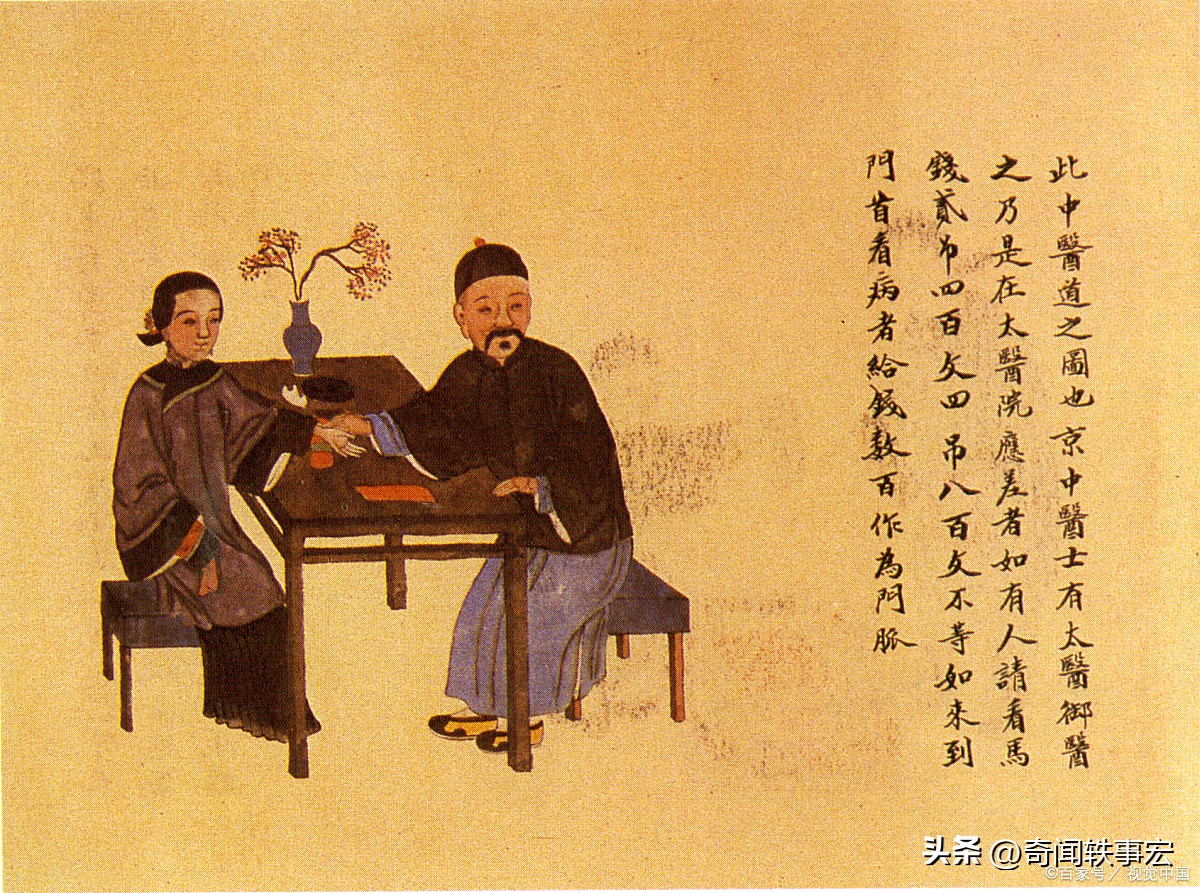 此中醫道之圖也京中醫士有太醫御醫
之乃是在太醫院應差者如有人請看馬
錢貳吊四百文四吊八百文不等如來到
門首看病者給錢數百作為門脈
头条 @奇闻轶事宏
©百家号/视觉中国